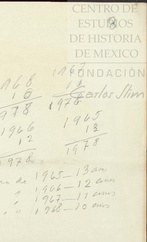 CENTRO DE
ESTUDIOS
DE HISTORIA
DE MEXICO
FUNDACIÓN
Carlos Slim
1968
10
1978
1967
11
1978
1966
12
1978
1965
13
1978
de 1965-13 años
" 1966-12 años
" 1967-11 años
" 1968-10 años